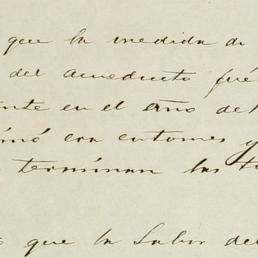 que la medida de
del acueducto fué
en el año de
con entonces y
terminan las
que la Labor del